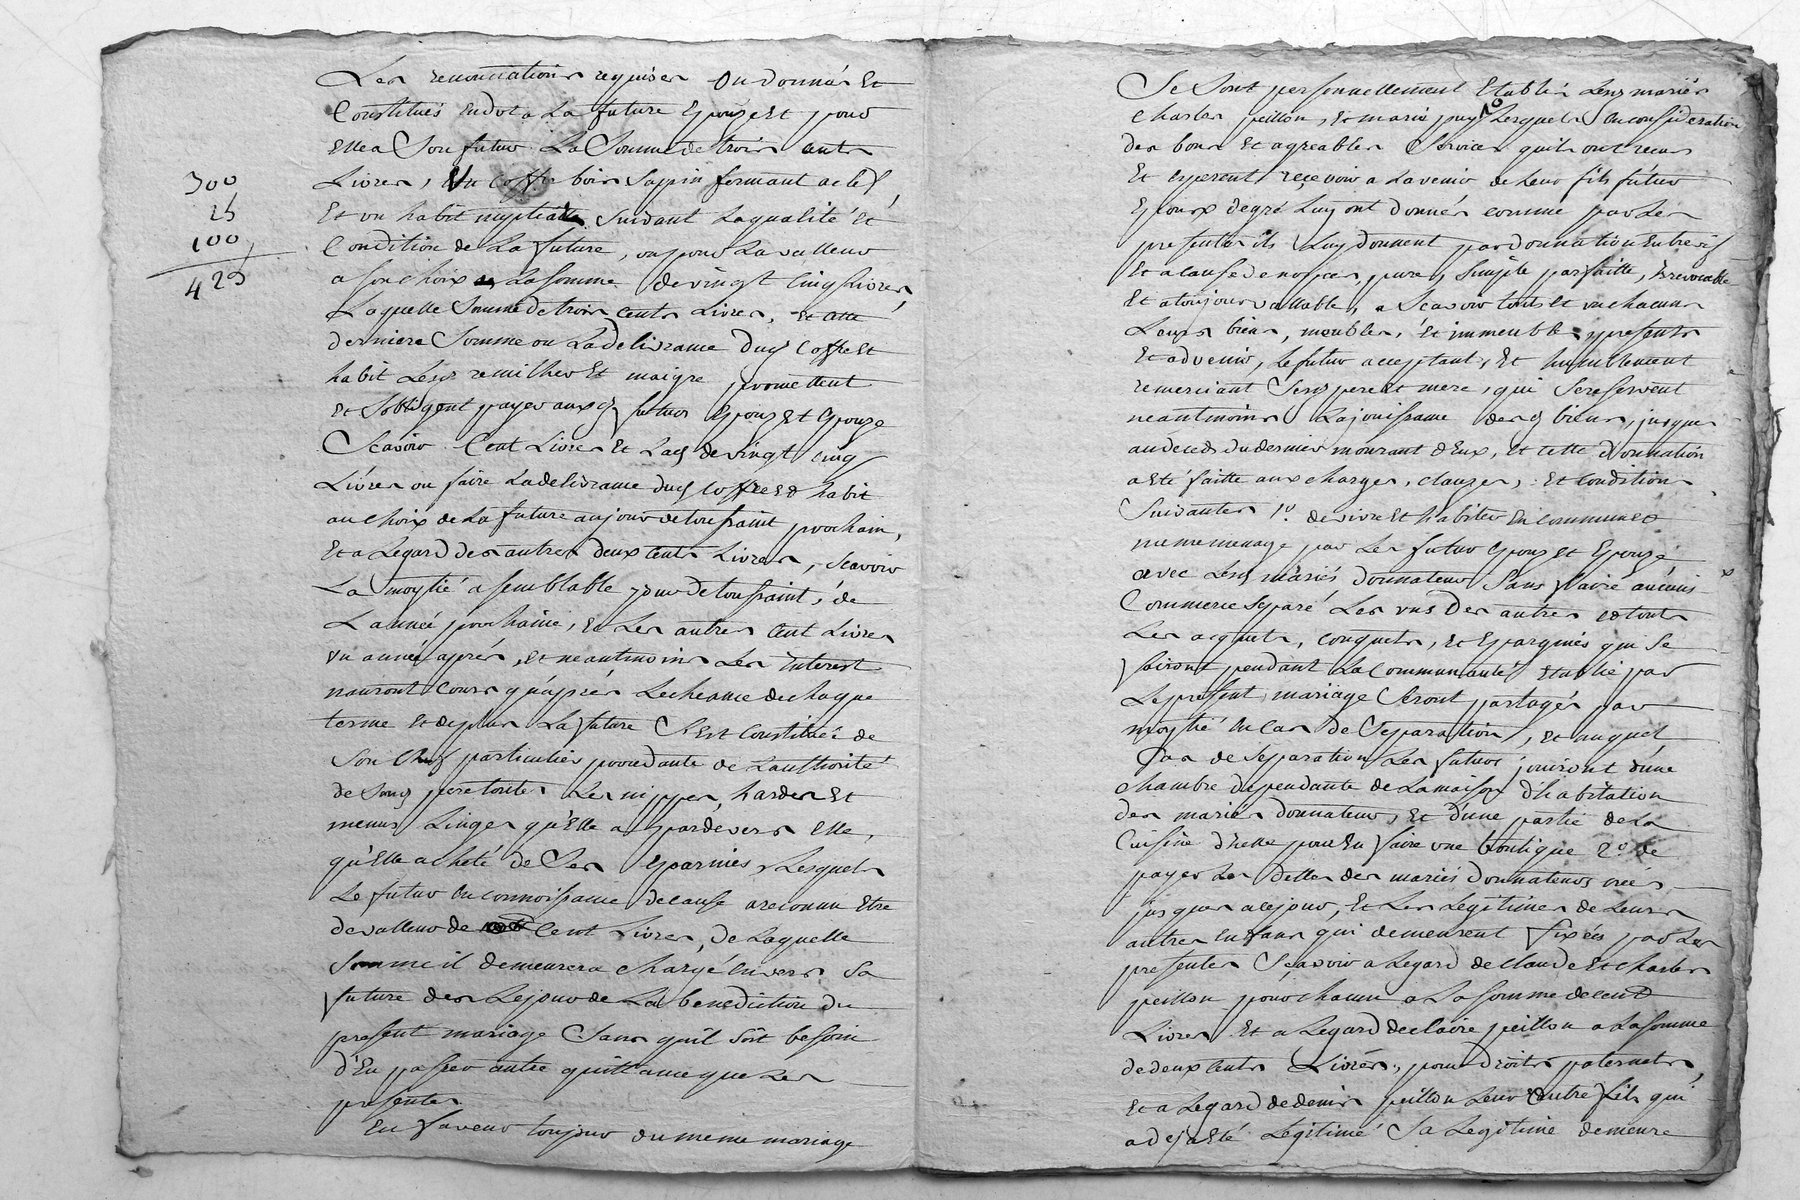 Les renonciations requises ont donnés Et
Constitués en dot a La future Epouze Et pour
Elle a Son futur La Somme de trois cents
Livres, Un coffre bois Sappin fermant a clef
Et un habit nuptial Suivant La qualité Et
Condition de La future, ou pour La valleur
a son choix La somme de vingt Cinq Livres,
Laquelle Somme de trois Cents Livres, Et cette
derniere Somme ou La delivrance dud Coffre Et
habit Lesd remilheu Et maigre promettent
Et Sobligent payer auxd futurs Epoux Et Epouze
Scavoir Cent Livres Et Lad de vingt Cinq
Livres ou faire La delivrance dud Coffre Et habit
au choix de La future au jour de toussaint prochain,
Et a Legard des autres deux Cents Livres, Scavoir
La moytié a semblable jour de toussaint, de
Lannée prochaine, Et Les autres Cent Livres
un année aprés, Et neantmoins Les interest
nauront Cours qu'aprés Lecheance de chaque
terme Et de plus La future S'est Constituée de
Son Chef particulier procedante de Lauthorité
de Sond pere toutes Les nippes, hardes Et
menus Linges qu'Elle a pardevers Elle,
qu'Elle acheté de Ses Eparnies, Lesquels
Le futur En connoissance de cause a reconnu Etre
de valleur de Cent Livres, de Laquelle
Somme il demeurera chargé Envers Sa
future des Le jour de La benediction du
present mariage Sans qu'il soit besoin
d'En passer autre quittance que Les
presentes
En faveur toujour du meme mariage
300
25
100
425
Se Sont personnellement Etablis Lesd mariés
Charles peillon, Et marie puy Lesquels En consideration
des bons Et agreables Services quils ont recus
Et esperent recevoir a Lavenir de Leur fils futur
Epoux de gré Luy ont donnés comme par Les
presentes ils Luy donnent par donnation Entre vifs
Et a cause de nopces, pure, Simple parfaitte, irrevocable
Et a toujour vallable, a Scavoir touts Et un chacuns
Leurs biens, meubles, Et immeubles, presents
Et advenir, Le futur acceptant, Et humblement
remerciant Sesd pere Et mere, qui Se reservent
neantmoins La jouissance desd biens, jusques
au deceds du dernier mourant d'Eux, Et cette donnation
a Eté faitte aux charges, clauzes, Et Condition
Suivantes 1º de vivre Et habiter En commun Et
meme menage par Les futur Epoux Et Epouze
avec Lesd mariés donnateurs Sans faire aucuns
Commerce Separé Les uns Des autres Et touts
Les acquets, conquets, Et Epargnés qui Se
fairont pendant La Communauté Etablie par
Le present mariage Seront partagés par
moytié En Cas de Separation, Et auquel
Cas de Separation Les futurs jouiront d'une
chambre dependante de La maison d'habitation
des mariés donnateurs, Et d'une partie de La
Cuisine d'icelle pour En faire une boutique 2º de
payer Les dettes des mariés donnateurs créés
jusques a ce jour, Et Les Legitimes de Leurs
autres Enfans qui demeurent fixées par Les
presentes Scavoir a Legard de Claude Et Charles
peillon pour chacun a La somme de cent
Livres Et a Legard de Claire peillon a La somme
de deux Cents Livres, pour droits paternels,
Et a Legard de denis peillon Leur autre fils qui
a deja Eté Legitimé Sa Legitime demeure